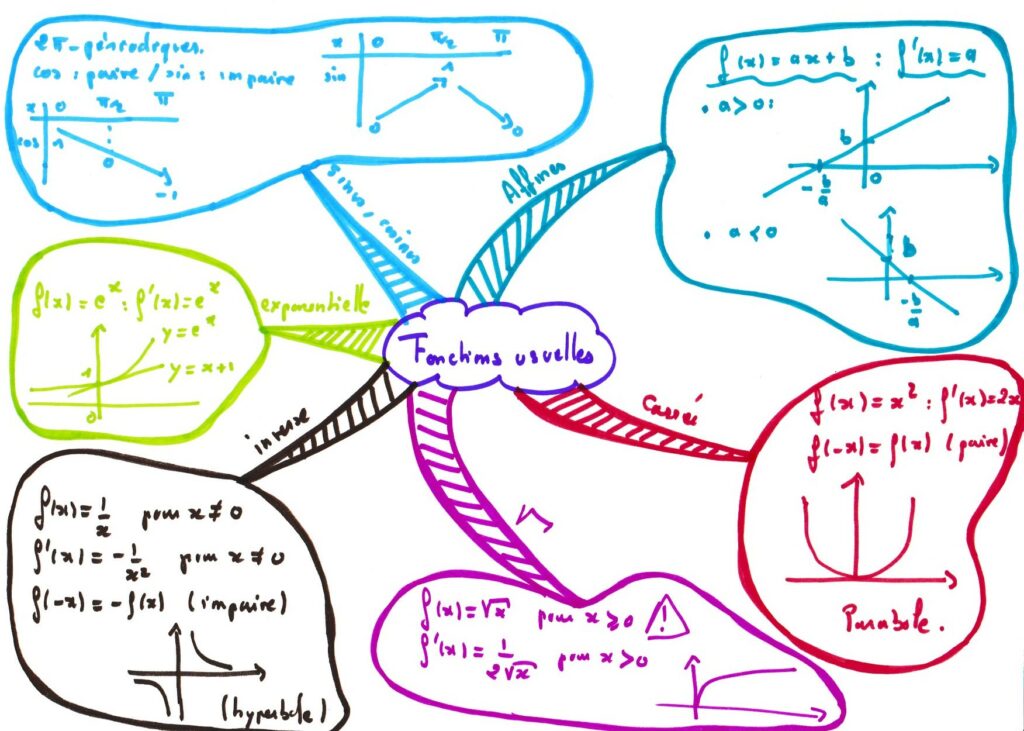 2π-périodiques.
cos : paire / sin : impaire
x 0 π/2 π
cos 1 0 -1
x 0 π/2 π
sin 0 1 0
Sinus, cosinus
Affines
f(x) = ax+b : f'(x) = a
. a > 0 :
b
0
-b/a
. a < 0
b
-b/a
exponentielle
f(x) = e^x : f'(x) = e^x
y = e^x
y = x+1
1
0
Fonctions usuelles
Carré
f(x) = x² : f'(x) = 2x
f(-x) = f(x) (paire)
Parabole.
inverse
f(x) = 1/x pour x ≠ 0
f'(x) = -1/x² pour x ≠ 0
f(-x) = -f(x) (impaire)
(hyperbole)
√
f(x) = √x pour x ≥ 0 !
f'(x) = 1/(2√x) pour x > 0